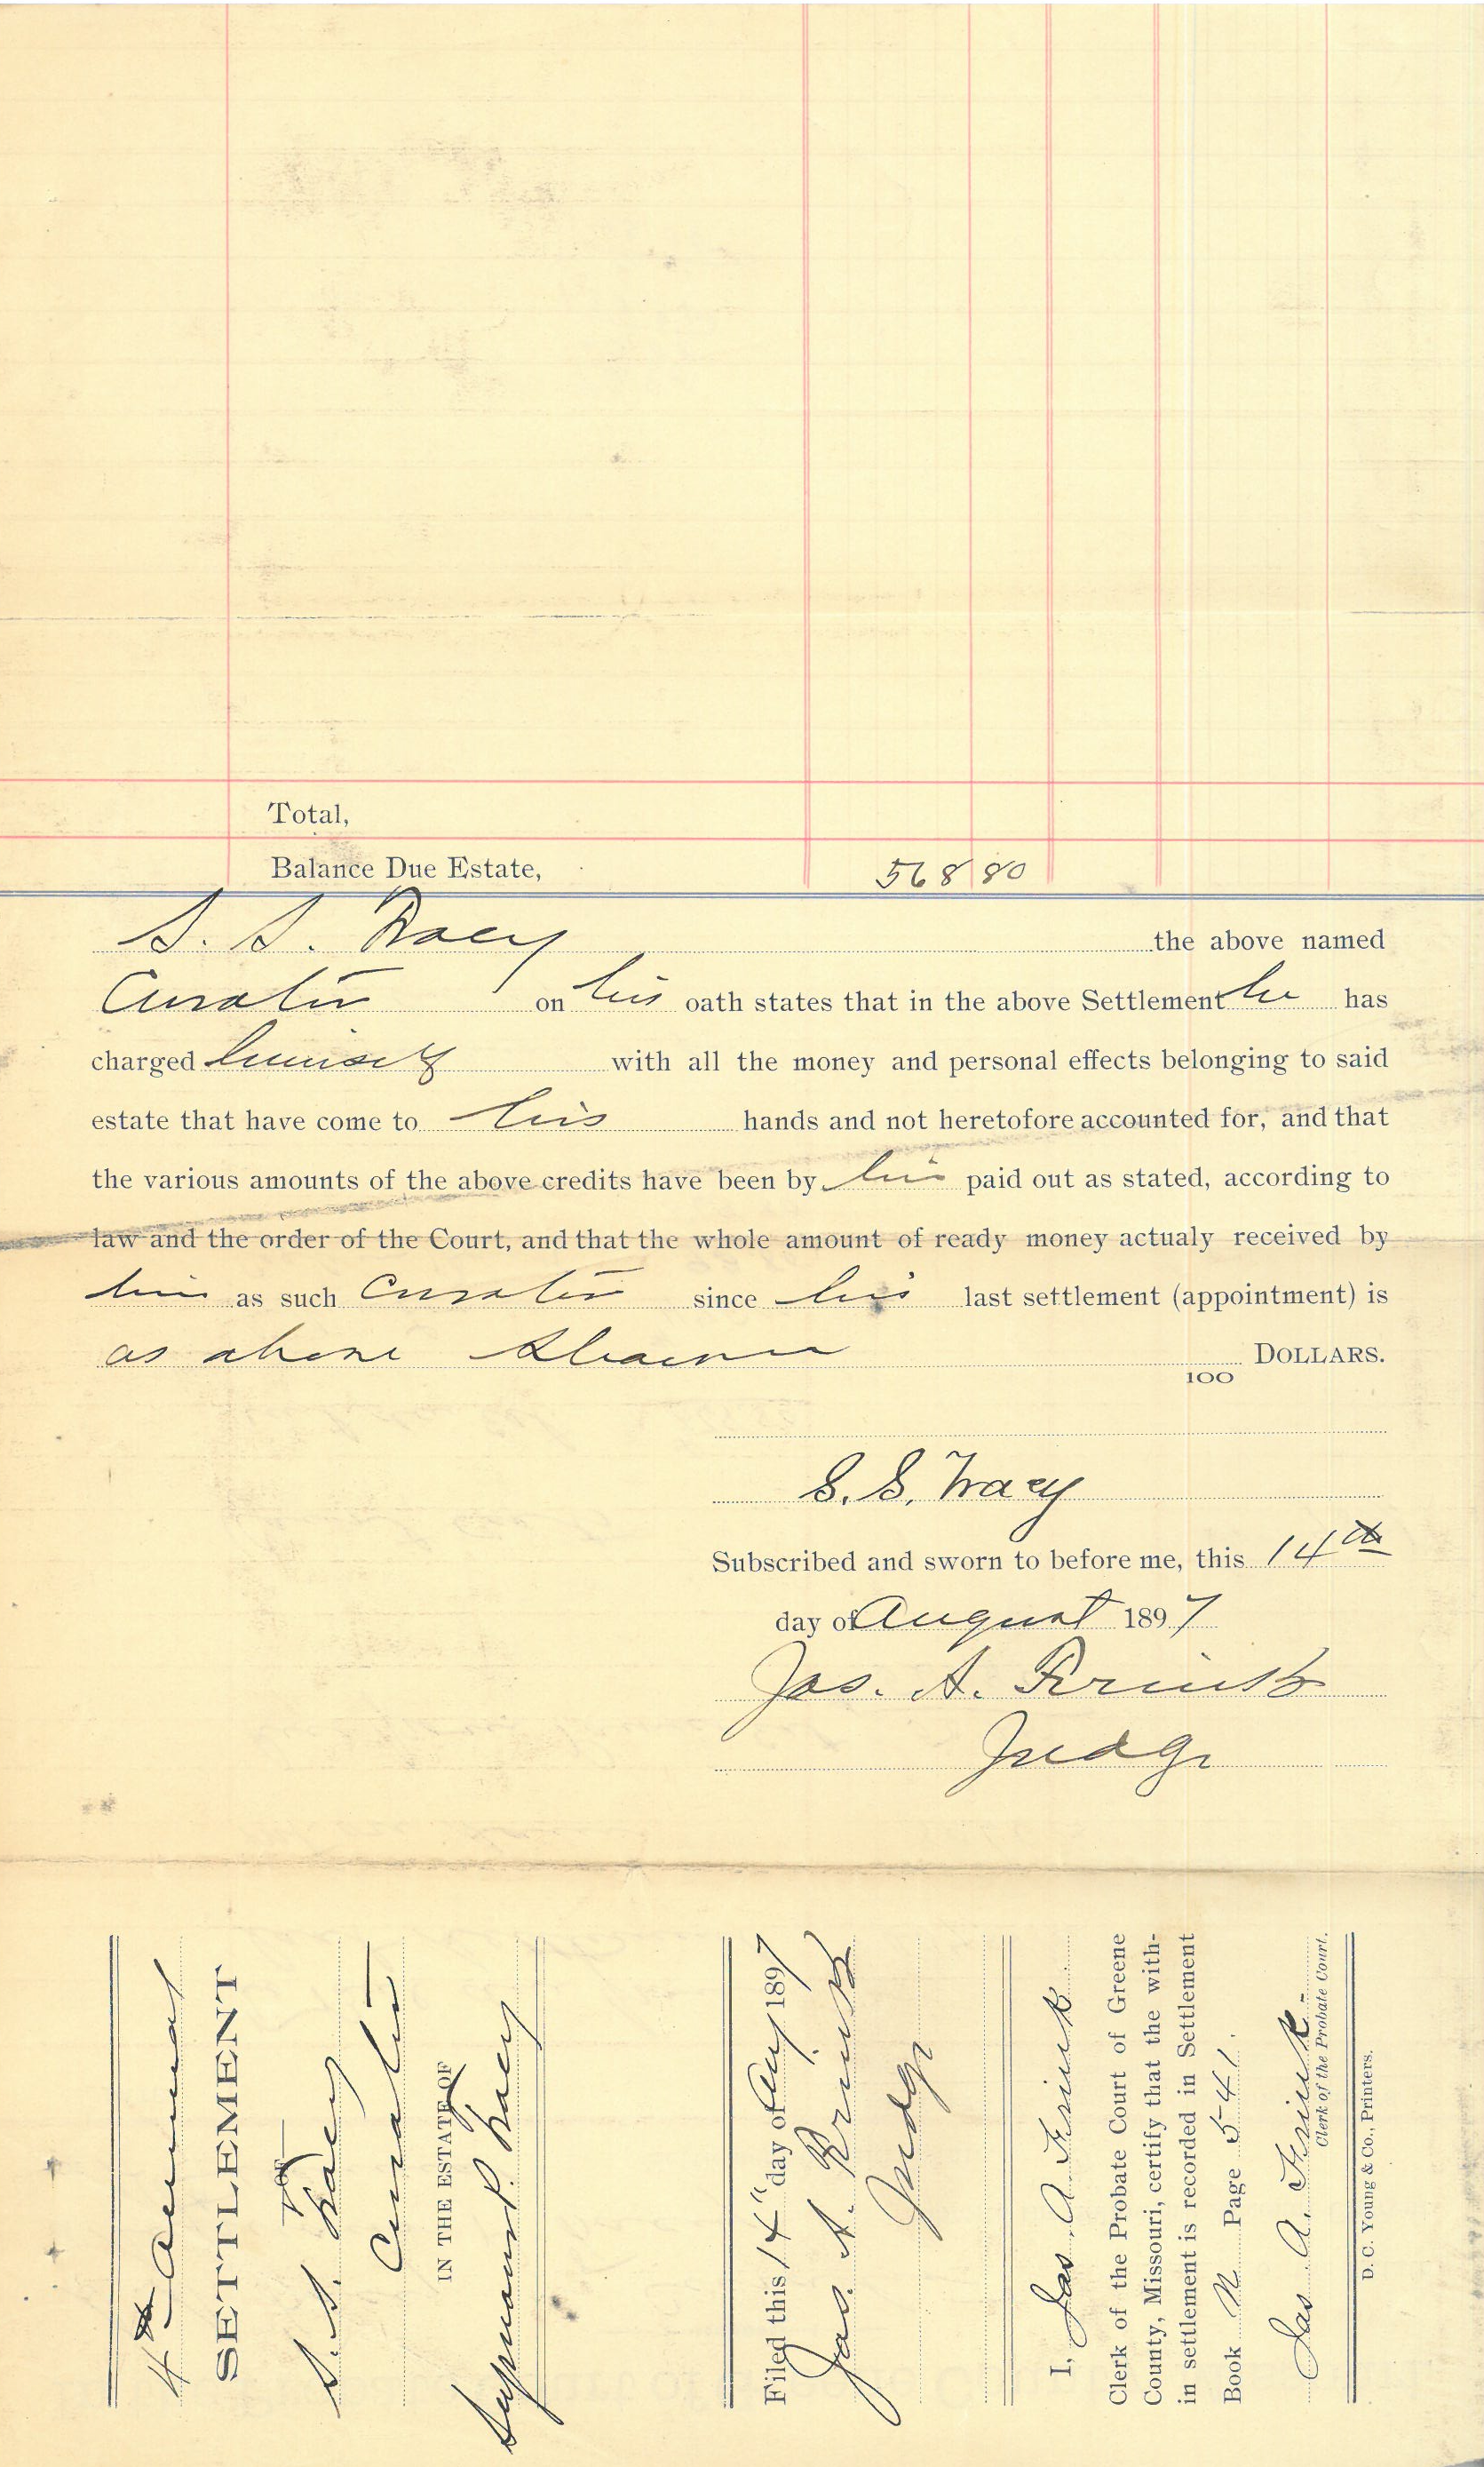 Total,
Balance Due Estate, 568 80
S. S. Tracy the above named
Curator on his oath states that in the above Settlement he has
charged himself with all the money and personal effects belonging to said
estate that have come to his hands and not heretofore accounted for, and that
the various amounts of the above credits have been by him paid out as stated, according to
law and the order of the Court, and that the whole amount of ready money actualy received by
him as such Curator since his last settlement (appointment) is
as above shown DOLLARS.
100
S. S. Tracy
Subscribed and sworn to before me, this 14th
day of August 1897
Jas. A. Frink
Judge
4th Annual
SETTLEMENT
OF
S. S. Tracy
Curator
IN THE ESTATE OF
P. Tracy
Filed this 14" day of Aug 1897
Jas. A. Frink
Judge
I, Jas A Frink
Clerk of the Probate Court of Greene
County, Missouri, certify that the with-
in settlement is recorded in Settlement
Book N Page 541.
Jas A. Frink
Clerk of the Probate Court.
D. C. Young & Co., Printers.